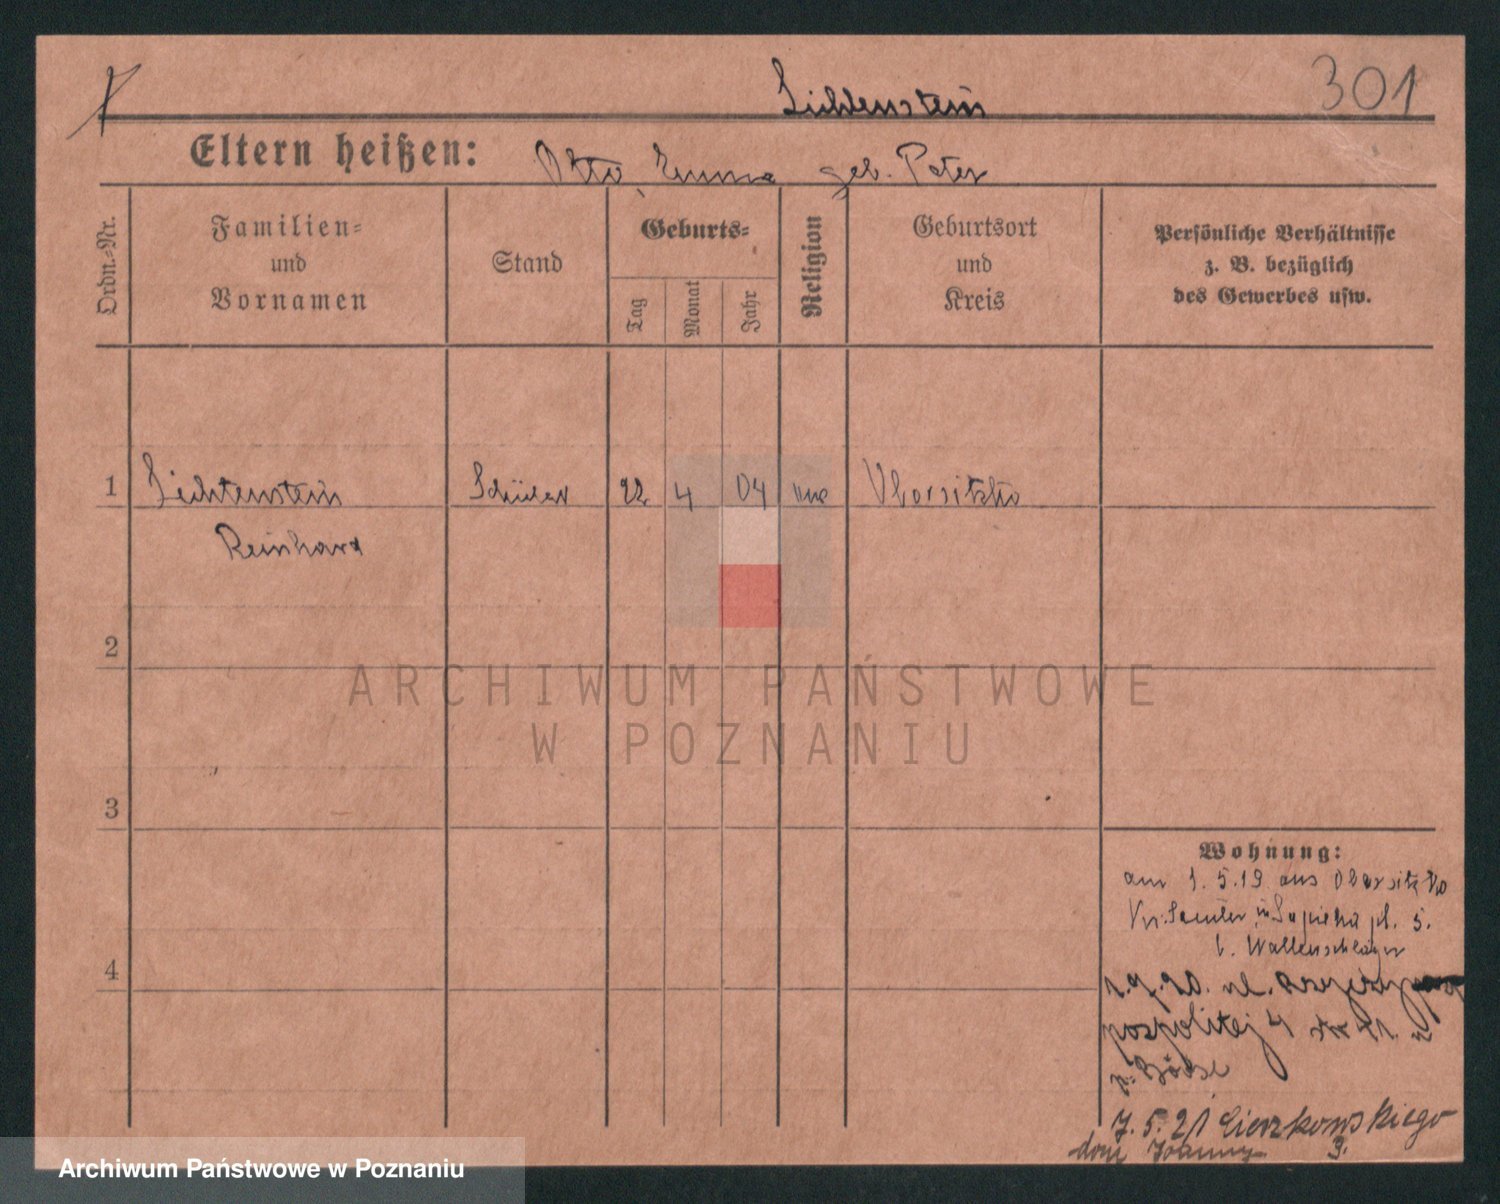 Lichtenstein
301
Eltern heißen: Otto, Emma geb. Pater
Ordn.-Nr.
Familien-
und
Vornamen
Stand
Geburts-
Tag
Monat
Jahr
Religion
Geburtsort
und
Kreis
Persönliche Verhältnisse
z. B. bezüglich
des Gewerbes usw.
1 Lichtenstein Schüler 22 4 04 Obersitzko
Reinhard
2
3
4
Wohnung:
am 1.5.19 aus Obersitzko
Kr. Samter in Sapieha pl. 5.
b. Wallenschläger
1.7.20. ul.
pospolitej 4
7.5.21 Cieszkowskiego
9.
ARCHIWUM PAŃSTWOWE
W POZNANIU
Archiwum Państwowe w Poznaniu